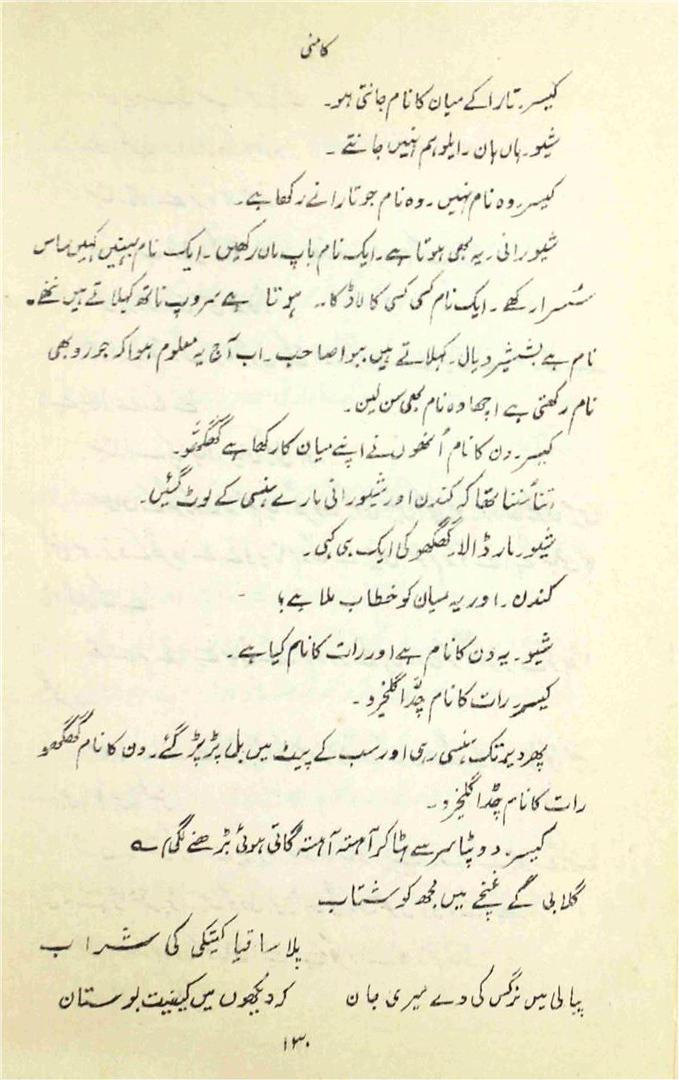 کامنی
کیسر۔ تارا کے میان کا نام جانتی ہو۔
شیو۔ ہاں ہان۔ ایلو ہم نہیں جانتے۔
کیسر۔ وہ نام نہیں۔ وہ نام جو تارا نے رکھا ہے۔
شیورانی۔ یہ بھی ہوتا ہے۔ ایک نام باپ مان رکھیں۔ ایک نام بہنیں کہیں ساس
سُسرار کھے۔ ایک نام کسی کسی کا لاڈ کا۔ ہوتا ہے سروپ ناتھ کہلاتے ہیں ننھے۔
نام ہے بشیشر دیال۔ کہلاتے ہیں ببوا صاحب۔ اب آج یہ معلوم ہوا کہ جورو بھی
نام رکھتی ہے اچھا وہ نام بھی سن لین۔
کیسر۔ دن کا نام اُنھوں نے اپنے میان کا رکھا ہے گھگھو۔
اتنا سُننا تھا کہ کندن اور شیورانی مارے ہنسی کے لوٹ گئیں۔
شیو۔ مار ڈالا۔ گھگھو کی ایک ہی کہی۔
کندن۔ اور یہ میان کو خطاب ملا ہے؟
شیو۔ یہ دن کا نام ہے اور رات کا نام کیا ہے۔
کیسر۔ رات کا نام چڈا گلخیرو۔
پھر دیر تک ہنسی رہی اور سب کے پیٹ میں بل پڑ پڑ گئے۔ دن کا نام گھگھو
رات کا نام چڈا گلخیرو۔
کیسر دوپٹا سر سے ہٹا کر آہستہ آہستہ گاتی ہوئی بڑھنے لگی ؎
گلابی کے غنچے میں مجھ کو شتاب
پلا ساقیا کیتکی کی شراب
پیالی میں نرگس کی دے میری جان کہ دیکھوں میں کیفیت بوستان
۱۳۰